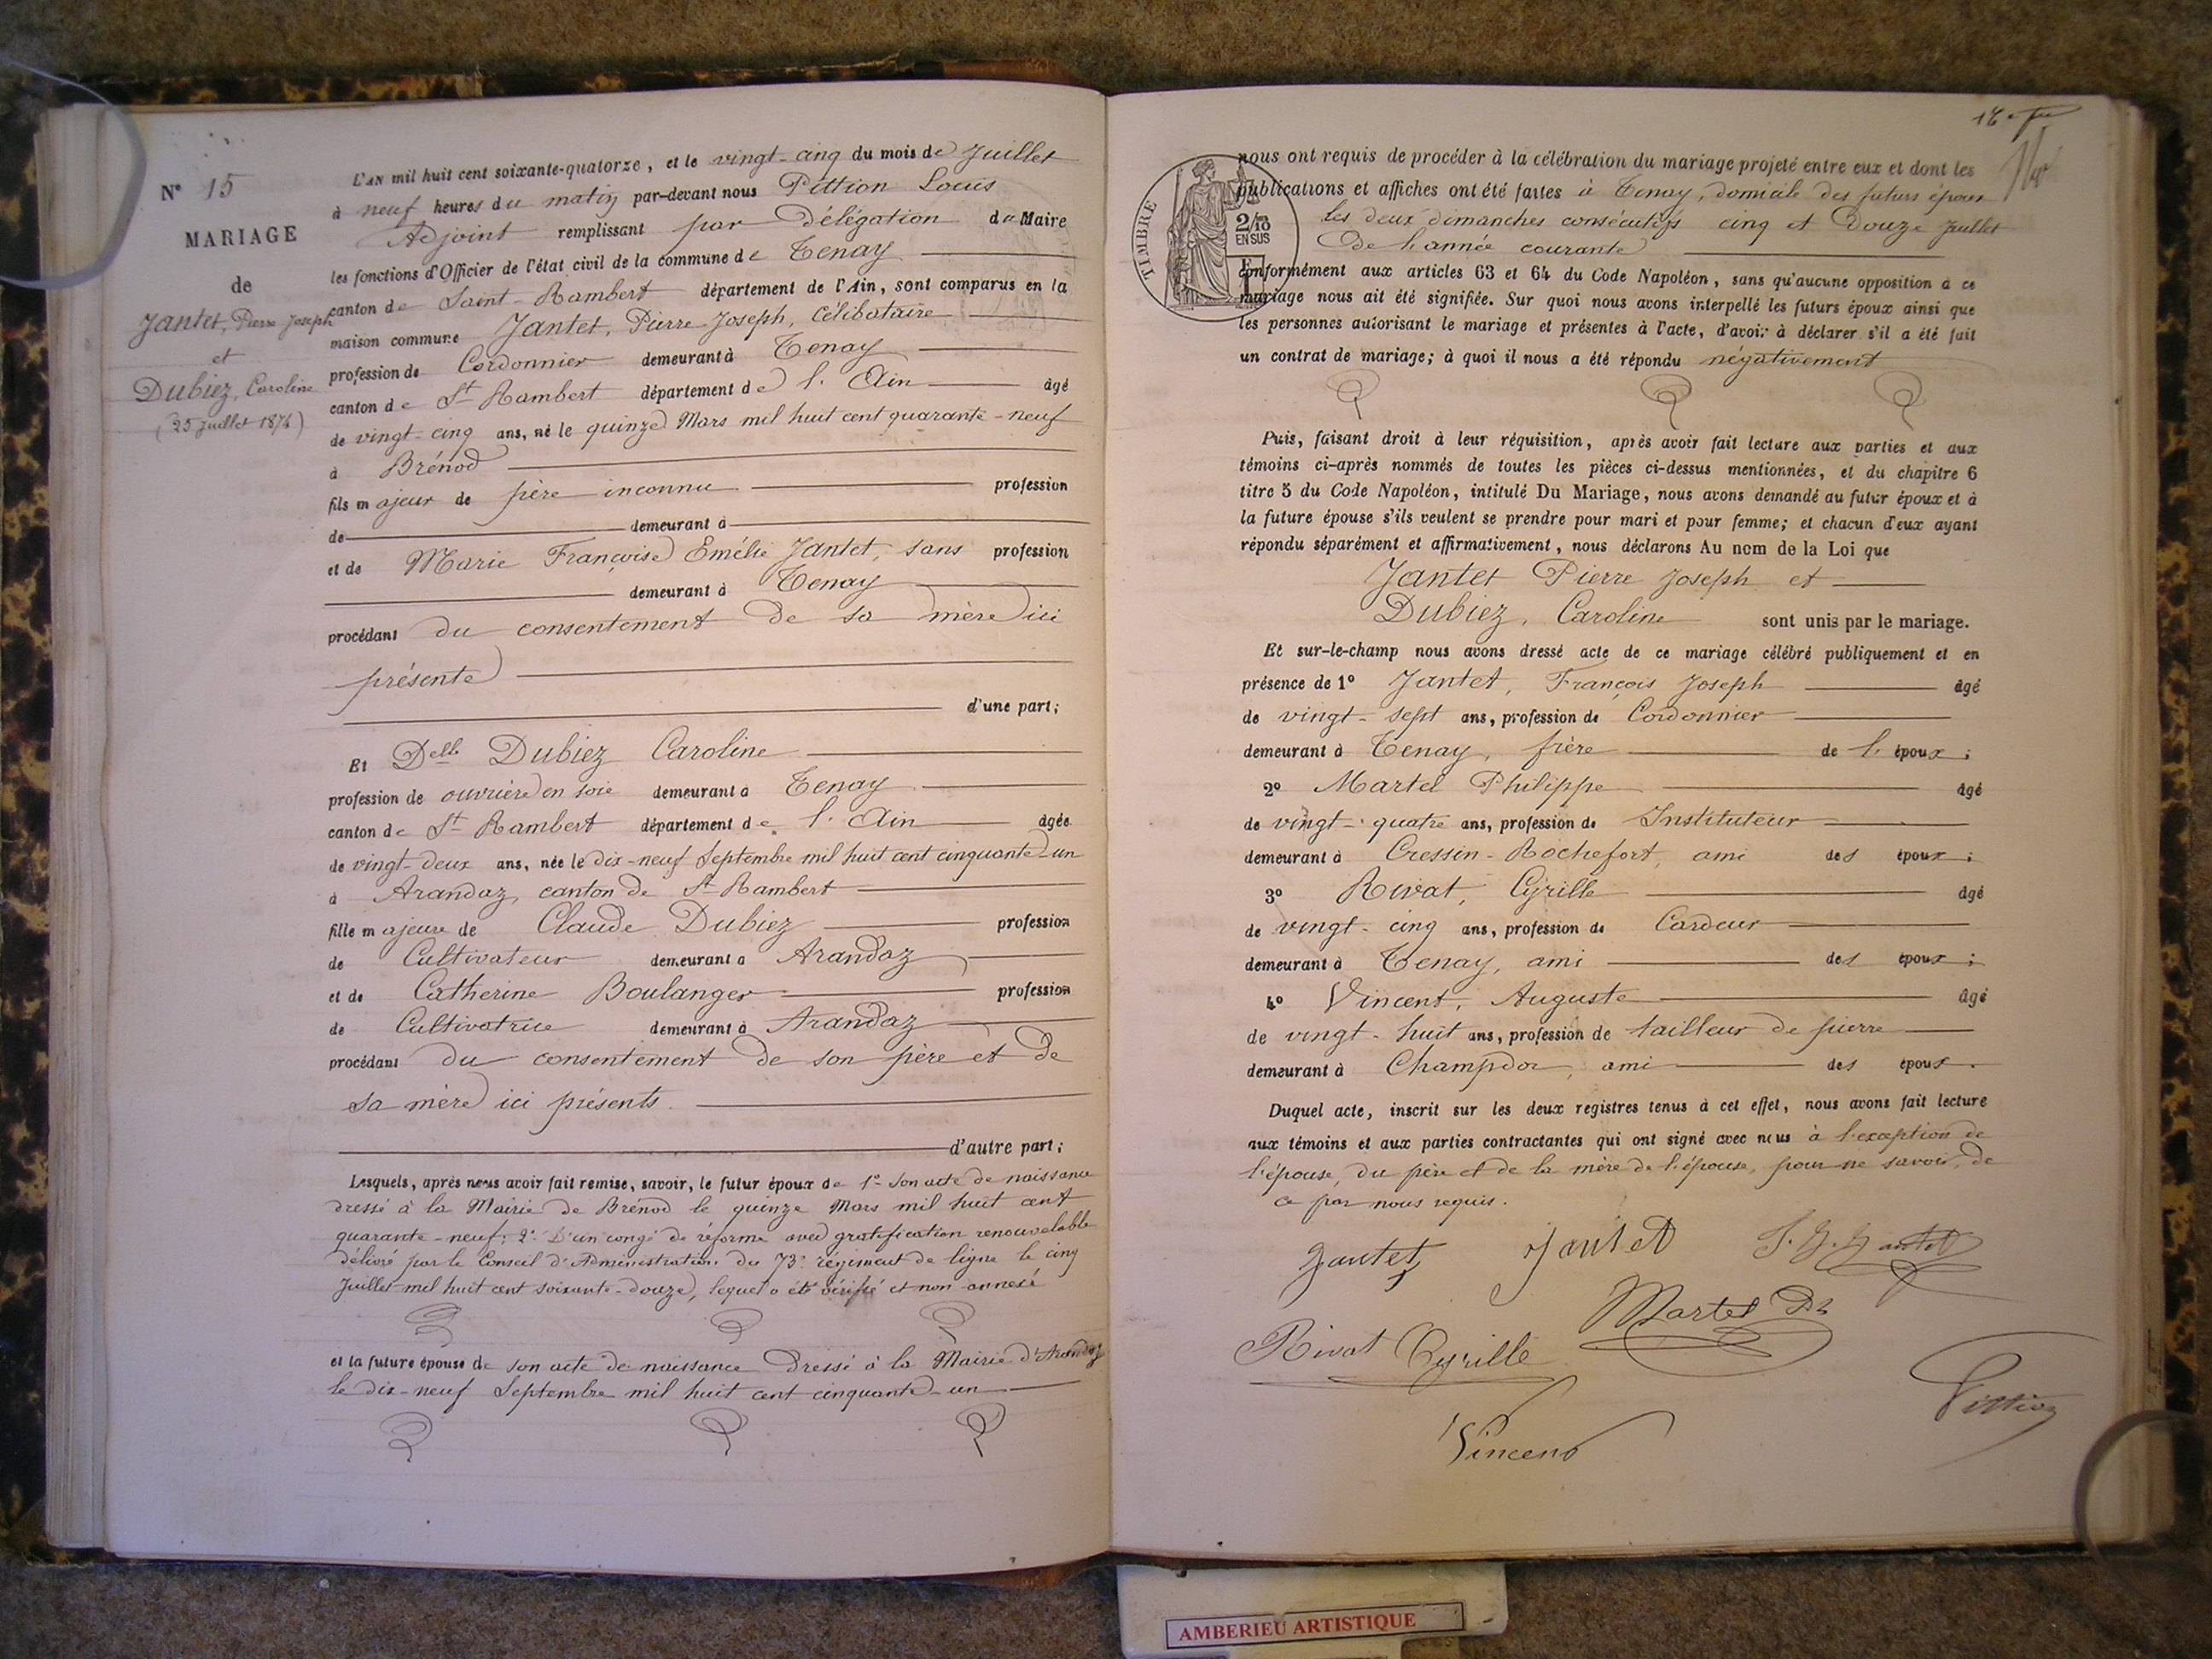 N° 15
MARIAGE
de
Jantet, Pierre Joseph
et
Dubiez, Caroline
(25 Juillet 1874)
L'AN mil huit cent soixante-quatorze, et le vingt-cinq du mois de Juillet
à neuf heures du matin par-devant nous Pittion Louis
Adjoint remplissant par Délégation du Maire
les fonctions d'Officier de l'état civil de la commune de Tenay
canton de Saint-Rambert département de l'Ain, sont comparus en la
maison commune Jantet, Pierre Joseph, célibataire
profession de Cordonnier demeurant à Tenay
canton de St Rambert département de l'Ain âgé
de vingt-cinq ans, né le quinze Mars mil huit cent quarante-neuf
à Brénod
fils majeur de père inconnu profession
de demeurant à
et de Marie Françoise Emélie Jantet, sans profession
demeurant à Tenay
procédant du consentement de sa mère ici
présente
d'une part;
Et Delle Dubiez Caroline
profession de ouvrière en soie demeurant à Tenay
canton de St Rambert département de l'Ain âgée
de vingt-deux ans, née le dix-neuf Septembre mil huit cent cinquante-un
à Arandaz, canton de St Rambert
fille majeure de Claude Dubiez profession
de Cultivateur demeurant à Arandaz
et de Catherine Boulanger profession
de Cultivatrice demeurant à Arandaz
procédant du consentement de son père et de
sa mère ici présents
d'autre part;
Lesquels, après nous avoir fait remise, savoir, le futur époux de 1° son acte de naissance
dressé à la Mairie de Brénod le quinze Mars mil huit cent
quarante-neuf; 2° D'un congé de réforme avec gratification renouvelable
délivré par le Conseil d'Administration du 73e régiment de ligne le cinq
Juillet mil huit cent soixante-douze, lequel a été vérifié et non annexé
et la future épouse de son acte de naissance dressé à la Mairie d'Arandaz
le dix-neuf Septembre mil huit cent cinquante-un
TIMBRE
2/10
EN SUS
nous ont requis de procéder à la célébration du mariage projeté entre eux et dont les
publications et affiches ont été faites à Tenay, domicile des futurs époux
les deux dimanches consécutifs cinq et Douze Juillet
de l'année courante
conformément aux articles 63 et 64 du Code Napoléon, sans qu'aucune opposition à ce
mariage nous ait été signifiée. Sur quoi nous avons interpellé les futurs époux ainsi que
les personnes autorisant le mariage et présentes à l'acte, d'avoir à déclarer s'il a été fait
un contrat de mariage; à quoi il nous a été répondu négativement
Puis, faisant droit à leur réquisition, après avoir fait lecture aux parties et aux
témoins ci-après nommés de toutes les pièces ci-dessus mentionnées, et du chapitre 6
titre 5 du Code Napoléon, intitulé Du Mariage, nous avons demandé au futur époux et à
la future épouse s'ils veulent se prendre pour mari et pour femme; et chacun d'eux ayant
répondu séparément et affirmativement, nous déclarons Au nom de la Loi que
Jantet Pierre Joseph et
Dubiez, Caroline sont unis par le mariage.
Et sur-le-champ nous avons dressé acte de ce mariage célébré publiquement et en
présence de 1° Jantet, François Joseph âgé
de vingt-sept ans, profession de Cordonnier
demeurant à Tenay, frère de l'époux;
2° Martel Philippe âgé
de vingt-quatre ans, profession de Instituteur
demeurant à Cressin-Rochefort, ami des époux;
3° Rivat, Cyrille âgé
de vingt-cinq ans, profession de Cardeur
demeurant à Tenay, ami des époux;
4° Vincent, Auguste âgé
de vingt-huit ans, profession de tailleur de pierre
demeurant à Champdor, ami des époux.
Duquel acte, inscrit sur les deux registres tenus à cet effet, nous avons fait lecture
aux témoins et aux parties contractantes qui ont signé avec nous à l'exception de
l'épouse, du père et de la mère de l'épouse, pour ne savoir, de
ce par nous requis.
Jantet Jantet F. J. Jantet
Martel Ph
Rivat Cyrille
Pittion
Vincent
AMBERIEU ARTISTIQUE